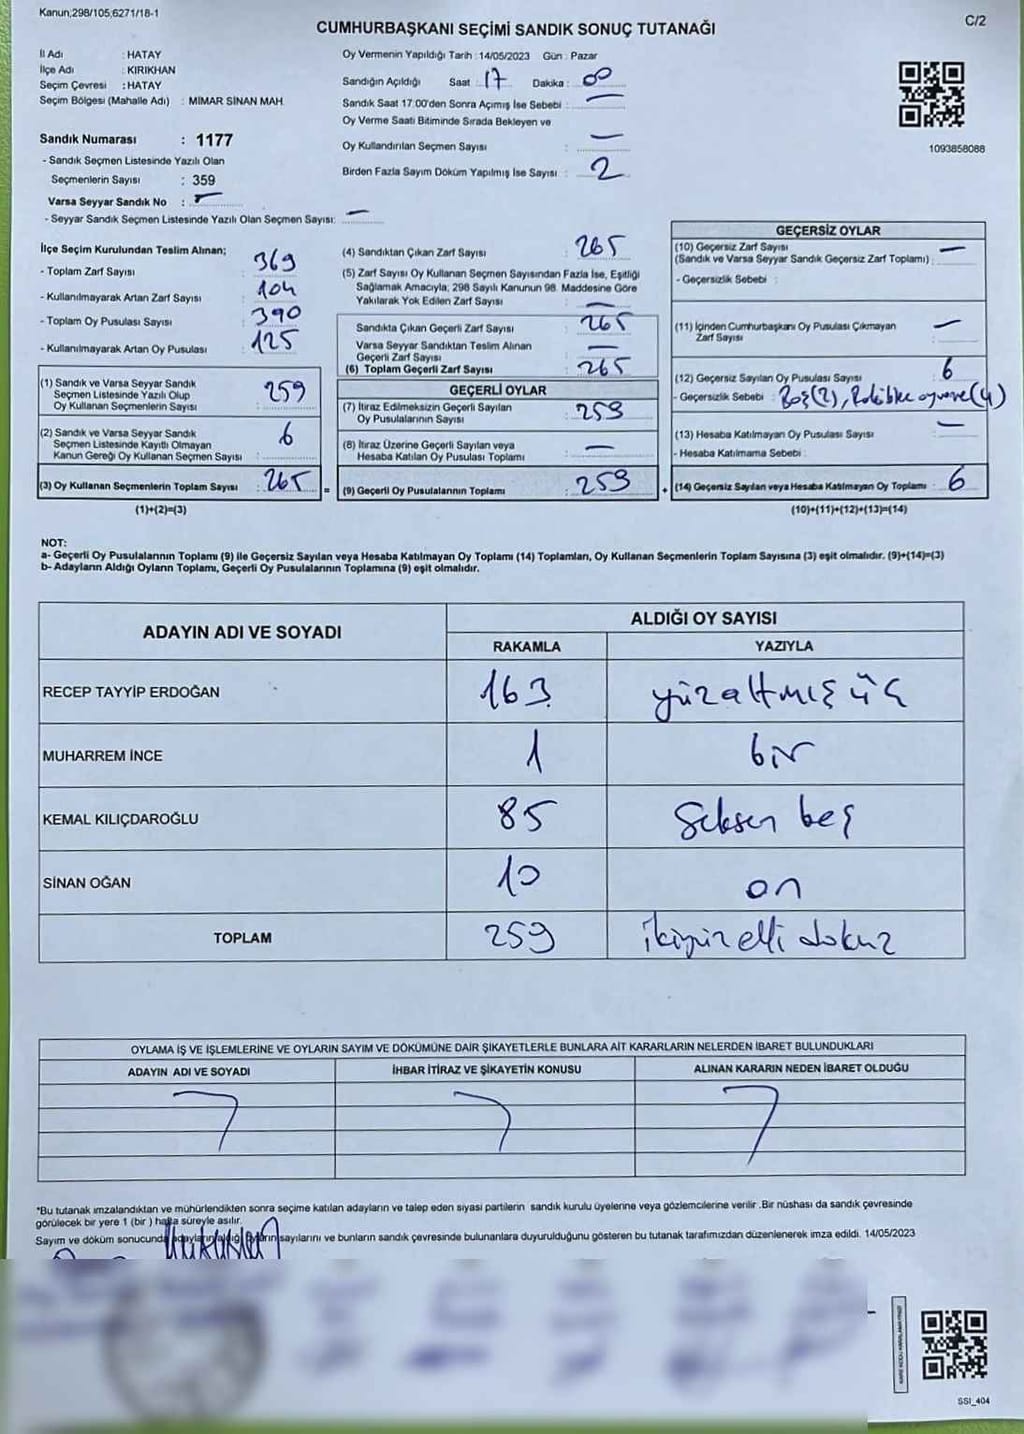 Kanun;298/105,6271/18-1
C/2
CUMHURBAŞKANI SEÇİMİ SANDIK SONUÇ TUTANAĞI
İl Adı : HATAY
İlçe Adı : KIRIKHAN
Seçim Çevresi : HATAY
Seçim Bölgesi (Mahalle Adı) : MİMAR SİNAN MAH.
Oy Vermenin Yapıldığı Tarih : 14/05/2023 Gün : Pazar
Sandığın Açıldığı Saat : 17 Dakika : 00
Sandık Saat 17:00'den Sonra Açımış İse Sebebi : —
Oy Verme Saati Bitiminde Sırada Bekleyen ve
Oy Kullandırılan Seçmen Sayısı : —
Birden Fazla Sayım Döküm Yapılmış İse Sayısı : 2
1093858088
Sandık Numarası : 1177
- Sandık Seçmen Listesinde Yazılı Olan
Seçmenlerin Sayısı : 359
Varsa Seyyar Sandık No : —
- Seyyar Sandık Seçmen Listesinde Yazılı Olan Seçmen Sayısı: —
İlçe Seçim Kurulundan Teslim Alınan;
- Toplam Zarf Sayısı 369
- Kullanılmayarak Artan Zarf Sayısı 104
- Toplam Oy Pusulası Sayısı 390
- Kullanılmayarak Artan Oy Pusulası 125
(1) Sandık ve Varsa Seyyar Sandık
Seçmen Listesinde Yazılı Olup
Oy Kullanan Seçmenlerin Sayısı 259
(2) Sandık ve Varsa Seyyar Sandık
Seçmen Listesinde Kayıtlı Olmayan
Kanun Gereği Oy Kullanan Seçmen Sayısı : 6
(3) Oy Kullanan Seçmenlerin Toplam Sayısı : 265 =
(1)+(2)=(3)
(4) Sandıktan Çıkan Zarf Sayısı 265
(5) Zarf Sayısı Oy Kullanan Seçmen Sayısından Fazla İse, Eşitliği
Sağlamak Amacıyla; 298 Sayılı Kanunun 98. Maddesine Göre
Yakılarak Yok Edilen Zarf Sayısı : —
Sandıkta Çıkan Geçerli Zarf Sayısı 265
Varsa Seyyar Sandıktan Teslim Alınan
Geçerli Zarf Sayısı : —
(6) Toplam Geçerli Zarf Sayısı : 265
GEÇERLİ OYLAR
(7) İtiraz Edilmeksizin Geçerli Sayılan
Oy Pusulalarının Sayısı : 259
(8) İtiraz Üzerine Geçerli Sayılan veya
Hesaba Katılan Oy Pusulası Toplamı : —
(9) Geçerli Oy Pusulalarının Toplamı : 259 +
GEÇERSİZ OYLAR
(10) Geçersiz Zarf Sayısı
(Sandık ve Varsa Seyyar Sandık Geçersiz Zarf Toplamı) : —
- Geçersizlik Sebebi :
(11) İçinden Cumhurbaşkanı Oy Pusulası Çıkmayan
Zarf Sayısı : —
(12) Geçersiz Sayılan Oy Pusulası Sayısı 6
- Geçersizlik Sebebi : Boş(2), (4)
(13) Hesaba Katılmayan Oy Pusulası Sayısı : —
- Hesaba Katılmama Sebebi :
(14) Geçersiz Sayılan veya Hesaba Katılmayan Oy Toplamı : 6
(10)+(11)+(12)+(13)=(14)
NOT:
a- Geçerli Oy Pusulalarının Toplamı (9) ile Geçersiz Sayılan veya Hesaba Katılmayan Oy Toplamı (14) Toplamları, Oy Kullanan Seçmenlerin Toplam Sayısına (3) eşit olmalıdır. (9)+(14)=(3)
b- Adayların Aldığı Oyların Toplamı, Geçerli Oy Pusulalarının Toplamına (9) eşit olmalıdır.
ADAYIN ADI VE SOYADI ALDIĞI OY SAYISI
RAKAMLA YAZIYLA
RECEP TAYYİP ERDOĞAN 163 yüzaltmış üç
MUHARREM İNCE 1 bir
KEMAL KILIÇDAROĞLU 85 Seksen beş
SİNAN OĞAN 10 on
TOPLAM 259 ikiyüz elli dokuz
OYLAMA İŞ VE İŞLEMLERİNE VE OYLARIN SAYIM VE DÖKÜMÜNE DAİR ŞİKAYETLERLE BUNLARA AİT KARARLARIN NELERDEN İBARET BULUNDUKLARI
ADAYIN ADI VE SOYADI İHBAR İTİRAZ VE ŞİKAYETİN KONUSU ALINAN KARARIN NEDEN İBARET OLDUĞU
*Bu tutanak imzalandıktan ve mühürlendikten sonra seçime katılan adayların ve talep eden siyasi partilerin sandık kurulu üyelerine veya gözlemcilerine verilir .Bir nüshası da sandık çevresinde
görülecek bir yere 1 (bir ) hafta süreyle asılır.
Sayım ve döküm sonucunda adayların aldığı oyların sayılarını ve bunların sandık çevresinde bulunanlara duyurulduğunu gösteren bu tutanak tarafımızdan düzenlenerek imza edildi. 14/05/2023
SSI_404